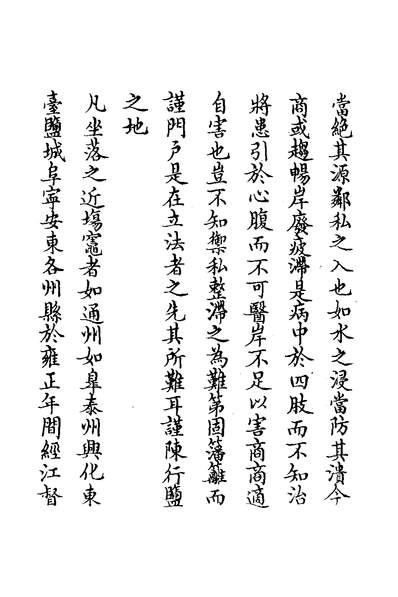 當絕其源鄰私之入也如水之浸當防其潰今
商或趨暢岸廢疲滯是病中於四肢而不知治
將患引於心腹而不可醫岸不足以害商商適
自害也豈不知禦私整滯之為難第固藩籬而
謹門戶是在立法者之先其所難耳謹陳行鹽
之地
凡坐落之近場竈者如通州如皋泰州興化東
臺鹽城阜寧安東各州縣於雍正年間經江督